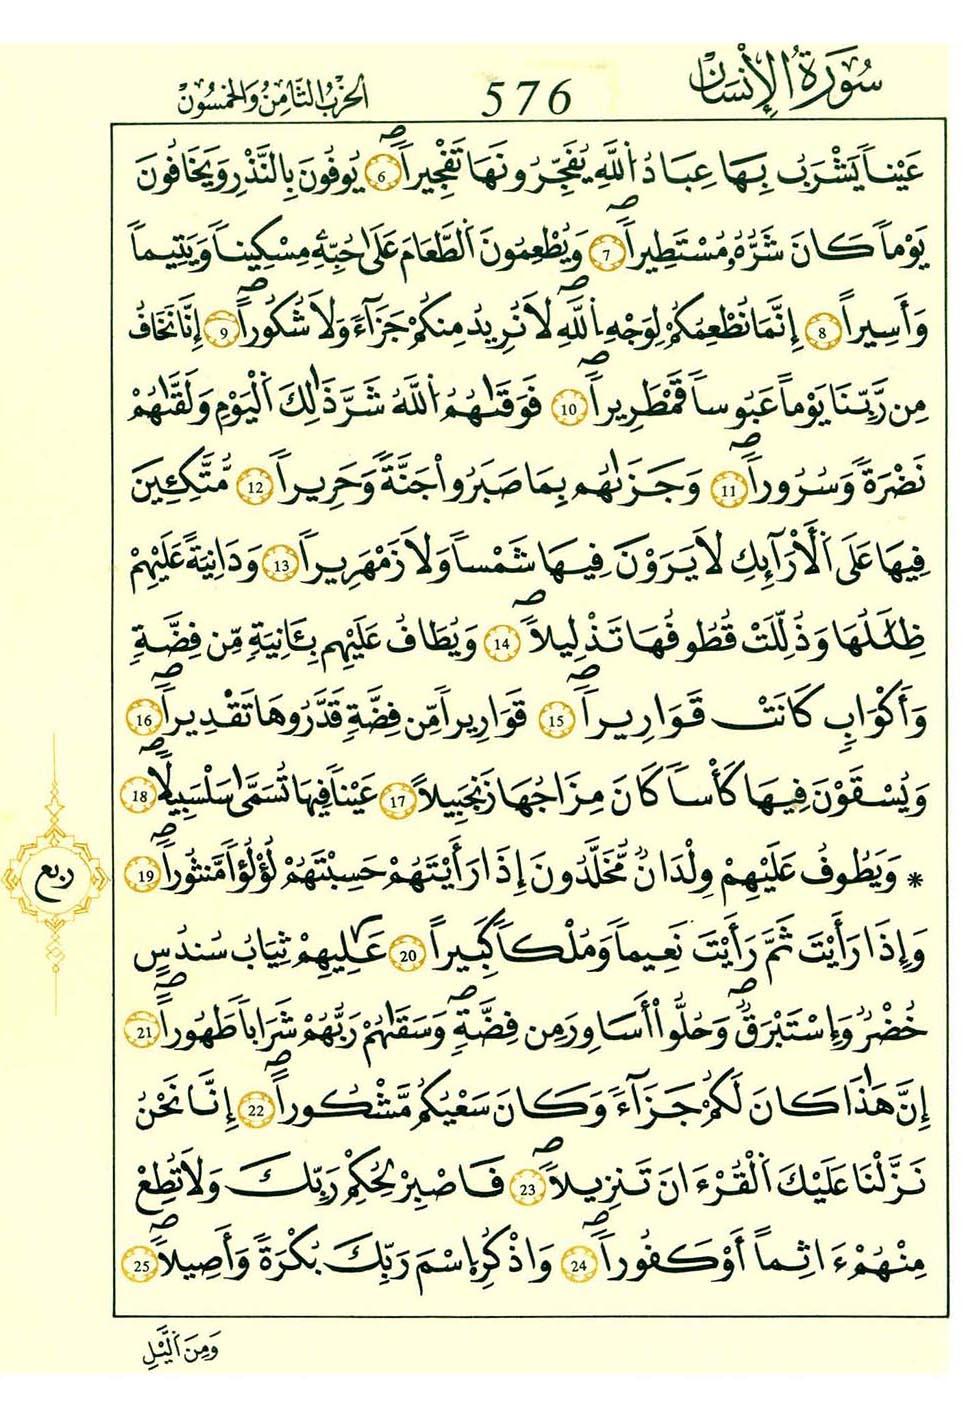 سُورَةُ الإِنْسَان
576
الحِزْبُ الثَّامِنُ وَالخَمْسُونْ
عَيْناً يَشْرَبُ بِهَا عِبَادُ اُ۬للَّهِ يُفَجِّرُونَهَا تَفْجِيراًۖ 6 يُوفُونَ بِالنَّذْرِ وَيَخَافُونَ
يَوْماً كَانَ شَرُّهُۥ مُسْتَطِيراًۖ 7 وَيُطْعِمُونَ اَ۬لطَّعَامَ عَلَىٰ حُبِّهِۦ مِسْكِيناً وَيَتِيماً
وَأَسِيراًۖ 8 إِنَّمَا نُطْعِمُكُمْ لِوَجْهِ اِ۬للَّهِ لَا نُرِيدُ مِنكُمْ جَزَآءً وَلَا شُكُوراًۖ 9 إِنَّا نَخَافُ
مِن رَّبِّنَا يَوْماً عَبُوساً قَمْطَرِيراًۖ 10 فَوَقَىٰهُمُ اُ۬للَّهُ شَرَّ ذَٰلِكَ اَ۬لْيَوْمِ وَلَقَّىٰهُمْ
نَضْرَةً وَسُرُوراًۖ 11 وَجَزَىٰهُم بِمَا صَبَرُواْ جَنَّةً وَحَرِيراً 12 مُّتَّكِـِٔينَ
فِيهَا عَلَى اَ۬لْأَرَآئِكِ لَا يَرَوْنَ فِيهَا شَمْساً وَلَا زَمْهَرِيراً 13 وَدَانِيَةً عَلَيْهِمْ
ظِلَٰلُهَا وَذُلِّلَتْ قُطُوفُهَا تَذْلِيلاًۖ 14 وَيُطَافُ عَلَيْهِم بِـَٔانِيَةٍ مِّن فِضَّةٍ
وَأَكْوَابٍ كَانَتْ قَوَارِيراًۖ 15 قَوَارِيراً مِّن فِضَّةٍ قَدَّرُوهَا تَقْدِيراًۖ 16
وَيُسْقَوْنَ فِيهَا كَأْساً كَانَ مِزَاجُهَا زَنجَبِيلاً 17 عَيْناً فِيهَا تُسَمَّىٰ سَلْسَبِيلاًۖ 18
* وَيَطُوفُ عَلَيْهِمْ وِلْدَانٌ مُّخَلَّدُونَ إِذَا رَأَيْتَهُمْ حَسِبْتَهُمْ لُؤْلُؤاً مَّنثُوراًۖ 19
ربع
وَإِذَا رَأَيْتَ ثَمَّ رَأَيْتَ نَعِيماً وَمُلْكاً كَبِيراً 20 عَٰلِيهِمْ ثِيَابُ سُندُسٍ
خُضْرٌ وَإِسْتَبْرَقٌۖ وَحُلُّواْ أَسَاوِرَ مِن فِضَّةٍۖ وَسَقَىٰهُمْ رَبُّهُمْ شَرَاباً طَهُوراًۖ 21
إِنَّ هَٰذَا كَانَ لَكُمْ جَزَآءً وَكَانَ سَعْيُكُم مَّشْكُوراًۖ 22 إِنَّا نَحْنُ
نَزَّلْنَا عَلَيْكَ اَ۬لْقُرْءَانَ تَنزِيلاًۖ 23 فَاصْبِرْ لِحُكْمِ رَبِّكَ وَلَا تُطِعْ
مِنْهُمْ ءَاثِماً أَوْ كَفُوراًۖ 24 وَاذْكُرِ اِ۪سْمَ رَبِّكَ بُكْرَةً وَأَصِيلاًۖ 25
وَمِنَ اَ۬لَّيْلِ